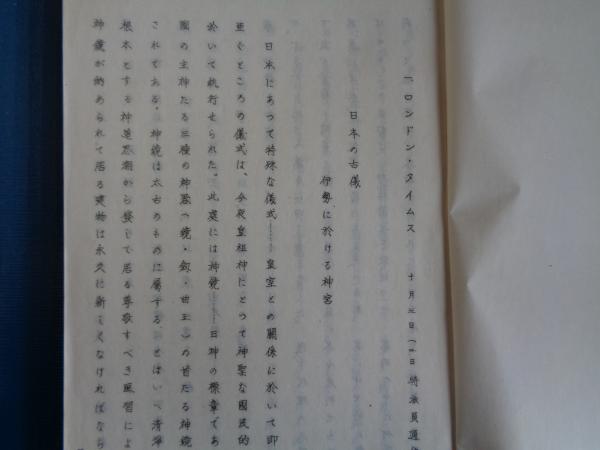 一、ロンドン・タイムス　十月三日(二日特派員通
日本の古儀
伊勢に於ける神宮
日本にあつて特殊な儀式……皇室との關係に於いて即
重ぐところの儀式は、今夜皇祖神にとつて神聖な國民的
於いて執行せられた。此處には神鏡……日神の標章であ
國の主神たる三種の神器(鏡・劔・曲玉)の首たる神鏡
これである。神鏡は太古のものに屬する、とはいへ清淨
根本とする神道思潮から發して居る尊敬すべき風習によ
神鏡が納められて居る建物は永久に新しくなければなら